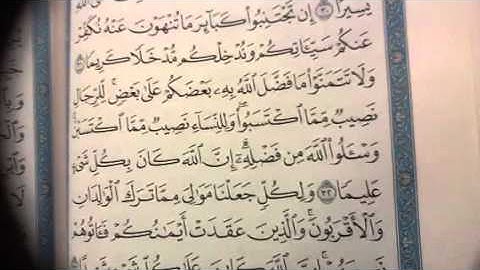 يَسِيرًا ۝٣٠ إِن تَجْتَنِبُوا۟ كَبَآئِرَ مَا تُنْهَوْنَ عَنْهُ نُكَفِّرْ
عَنكُمْ سَيِّـَٔاتِكُمْ وَنُدْخِلْكُم مُّدْخَلًا كَرِيمًا ۝٣١
وَلَا تَتَمَنَّوْا۟ مَا فَضَّلَ ٱللَّهُ بِهِۦ بَعْضَكُمْ عَلَىٰ بَعْضٍ ۚ لِّلرِّجَالِ
نَصِيبٌ مِّمَّا ٱكْتَسَبُوا۟ ۖ وَلِلنِّسَآءِ نَصِيبٌ مِّمَّا ٱكْتَسَبْنَ ۚ
وَسْـَٔلُوا۟ ٱللَّهَ مِن فَضْلِهِۦٓ ۗ إِنَّ ٱللَّهَ كَانَ بِكُلِّ شَىْءٍ
عَلِيمًا ۝٣٢ وَلِكُلٍّ جَعَلْنَا مَوَٰلِىَ مِمَّا تَرَكَ ٱلْوَٰلِدَانِ
وَٱلْأَقْرَبُونَ ۚ وَٱلَّذِينَ عَقَدَتْ أَيْمَٰنُكُمْ فَـَٔاتُوهُمْ